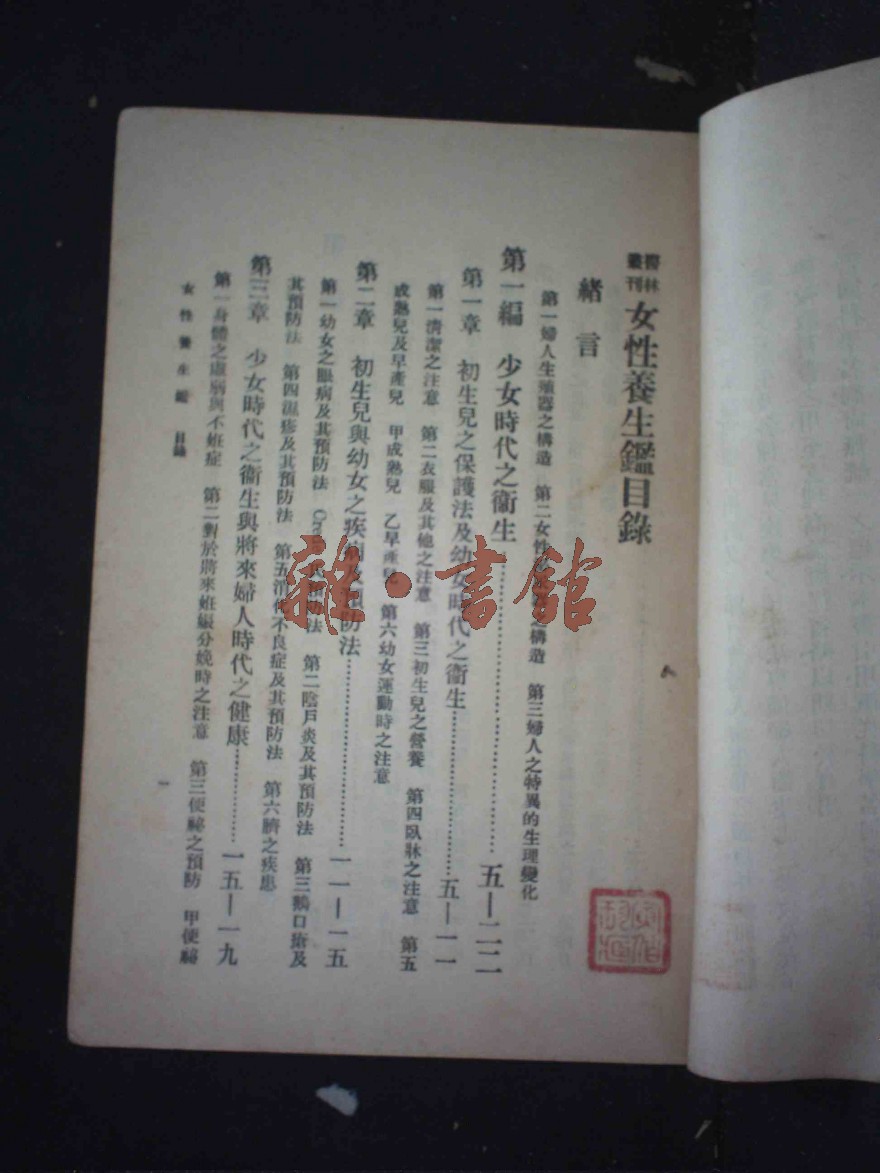 醫林叢刊 女性養生鑑目錄
緒言
第一婦人生殖器之構造 第二女性 之構造 第三婦人之特異的生理變化
第一編 少女時代之衞生……五—二二
第一章 初生兒之保護法及幼女時代之衞生……五—一一
第一淸潔之注意 第二衣服及其他之注意 第三初生兒之營養 第四臥牀之注意 第五
成熟兒及早產兒 甲成熟兒 乙早產兒 第六幼女運動時之注意
第二章 初生兒與幼女之疾病及預防法……一一—一五
第一幼女之眼病及其預防法 預防法 第二陰戶炎及其預防法 第三鵝口瘡及
其預防法 第四濕疹及其預防法 第五消化不良症及其預防法 第六臍之疾患
第三章 少女時代之衞生與將來婦人時代之健康……一五—一九
第一身體之虛弱與不姙症 第二對於將來姙娠分娩時之注意 第三便祕之預防 甲便祕
女性養生鑑 目錄
一
雜·書館